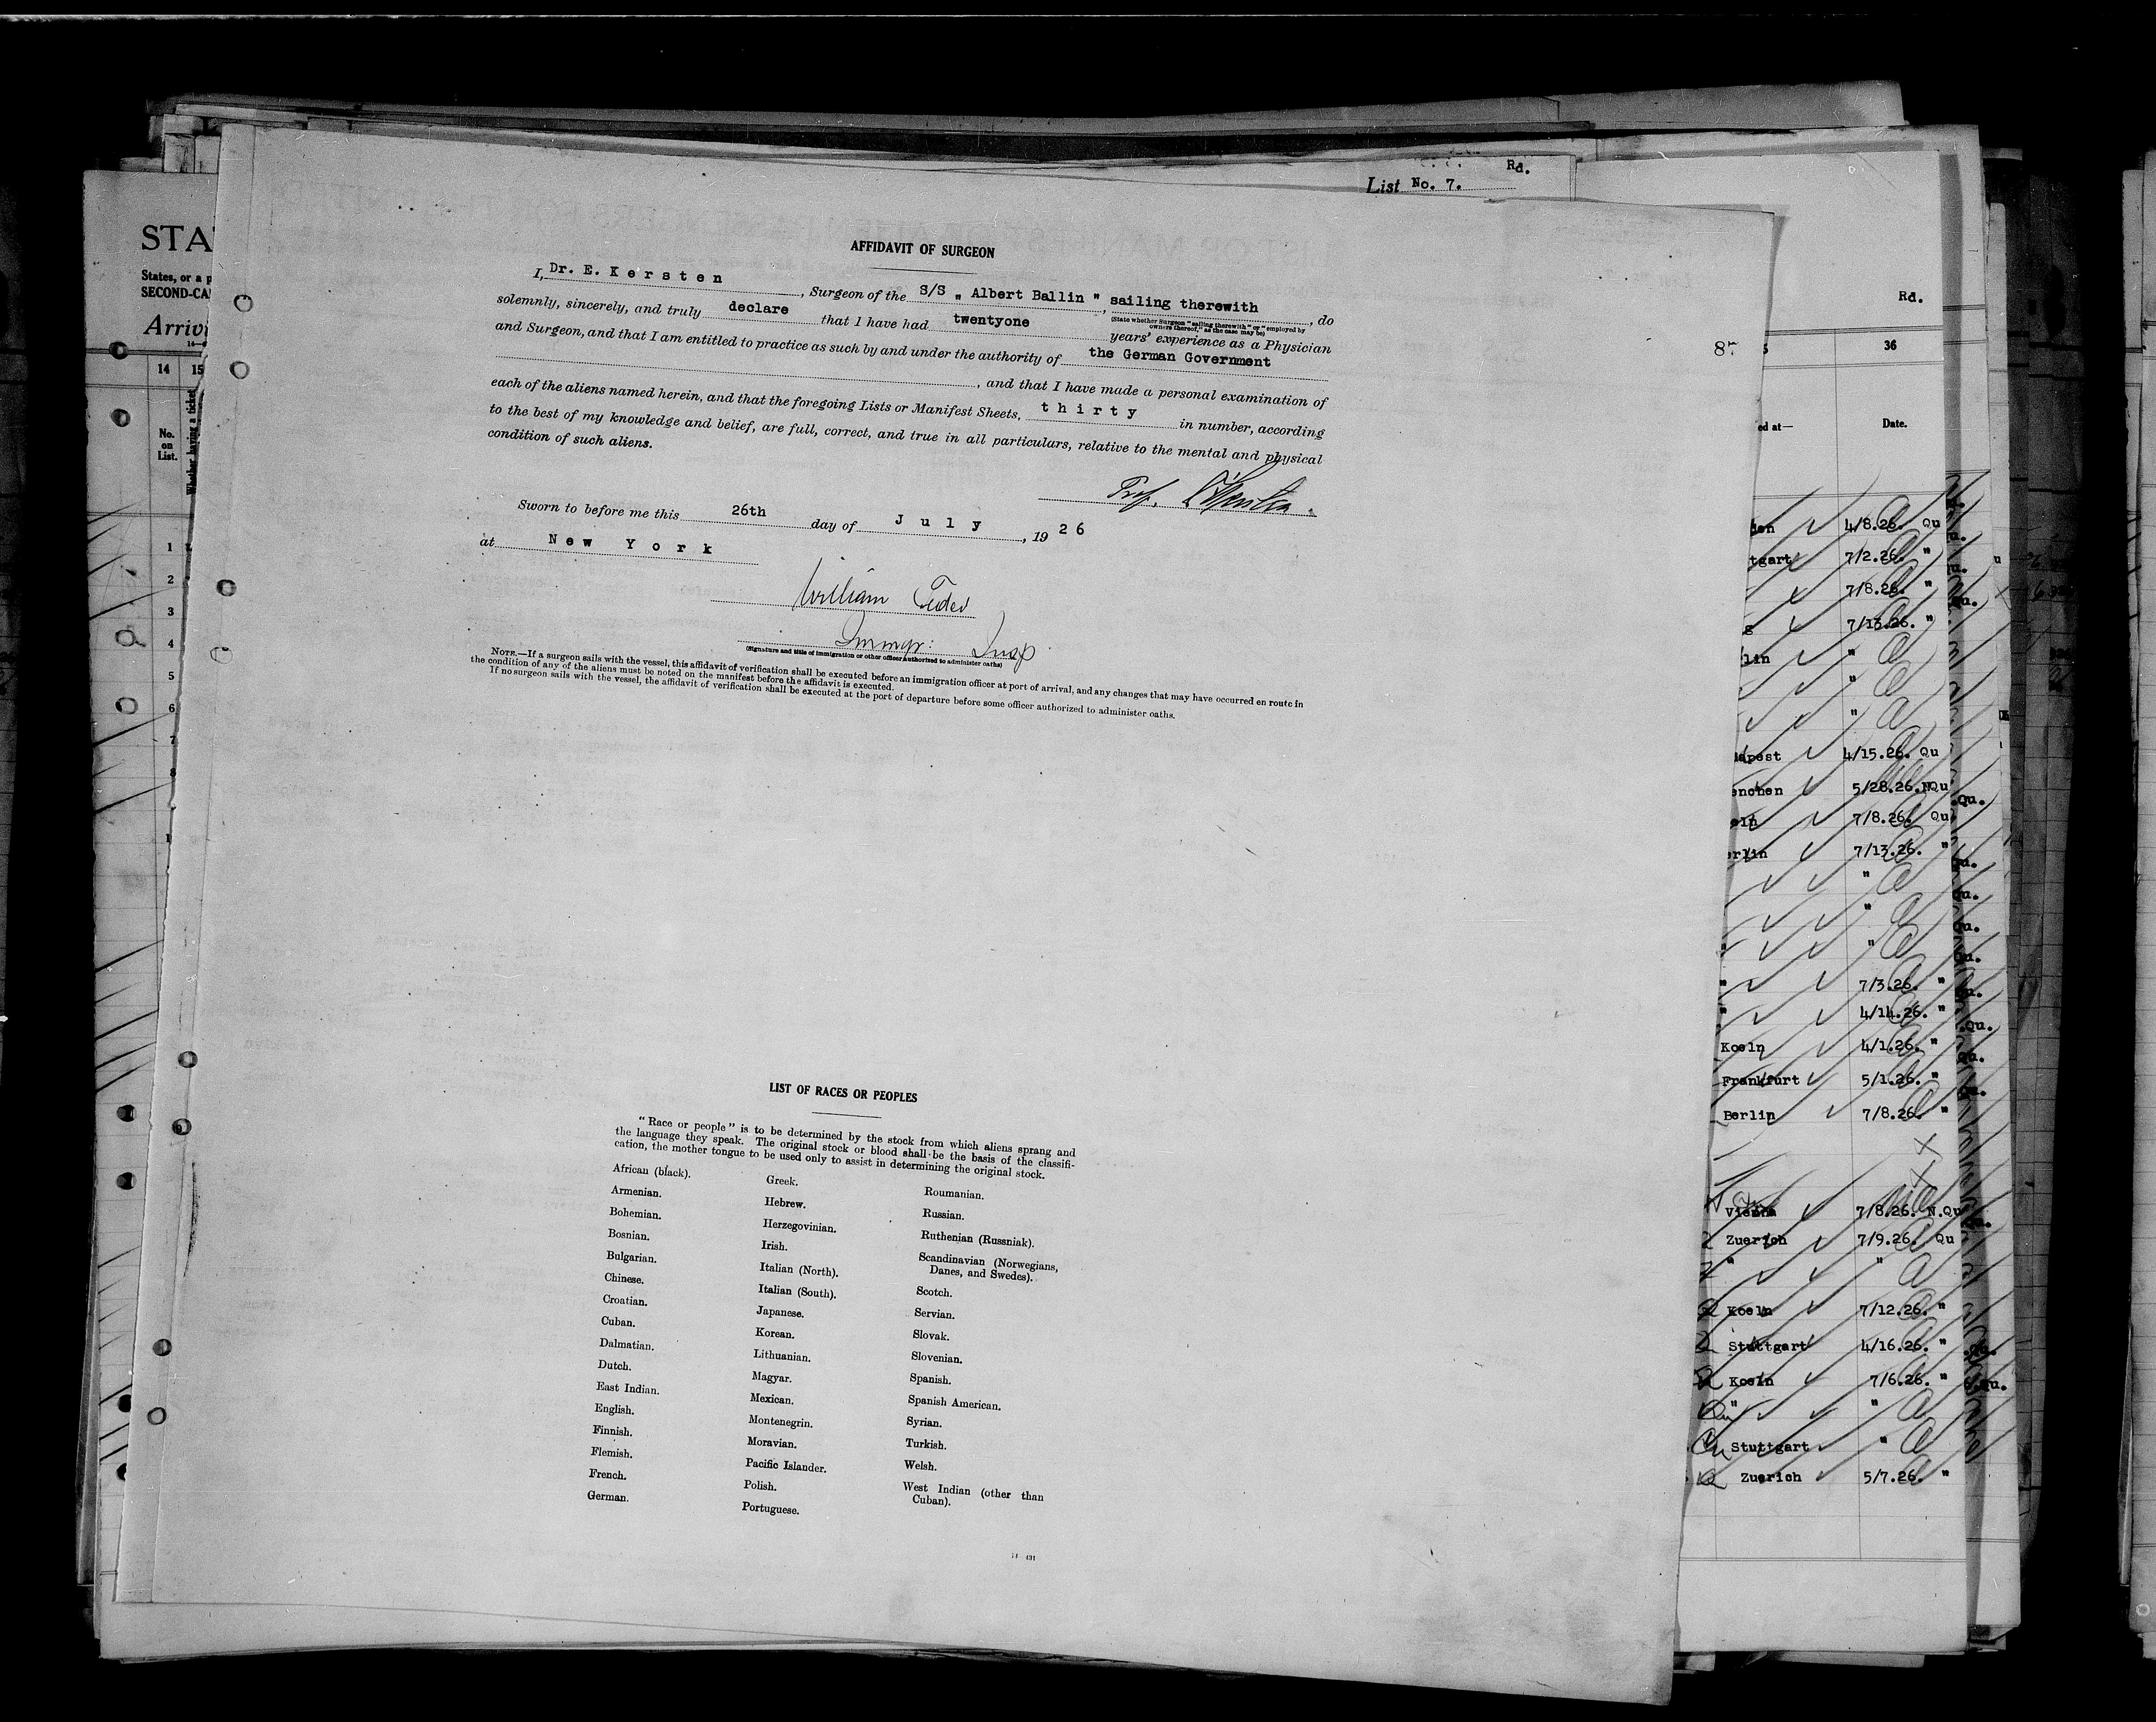 Rd.
List No. 7.
STA
States, or a p
SECOND-CA
Arriv
14
15
No.
on
List.
Whether having a ticket
1
2
3
4
5
6
7
8
1
AFFIDAVIT OF SURGEON
I, Dr. E. Kersten, Surgeon of the S/S „ Albert Ballin " sailing therewith, do
(State whether Surgeon "sailing therewith" or "employed by
owners thereof," as the case may be)
solemnly, sincerely, and truly declare that I have had twentyone years' experience as a Physician
and Surgeon, and that I am entitled to practice as such by and under the authority of the German Government
, and that I have made a personal examination of
each of the aliens named herein, and that the foregoing Lists or Manifest Sheets, thirty in number, according
to the best of my knowledge and belief, are full, correct, and true in all particulars, relative to the mental and physical
condition of such aliens.
Sworn to before me this 26th day of July, 1926
at New York
William
Immgr: Insp
(Signature and title of immigration or other officer authorized to administer oaths)
NOTE.—If a surgeon sails with the vessel, this affidavit of verification shall be executed before an immigration officer at port of arrival, and any changes that may have occurred en route in
the condition of any of the aliens must be noted on the manifest before the affidavit is executed.
If no surgeon sails with the vessel, the affidavit of verification shall be executed at the port of departure before some officer authorized to administer oaths.
LIST OF RACES OR PEOPLES
"Race or people" is to be determined by the stock from which aliens sprang and
the language they speak. The original stock or blood shall be the basis of the classifi-
cation, the mother tongue to be used only to assist in determining the original stock.
African (black).
Armenian.
Bohemian.
Bosnian.
Bulgarian.
Chinese.
Croatian.
Cuban.
Dalmatian.
Dutch.
East Indian.
English.
Finnish.
Flemish.
French.
German.
Greek.
Hebrew.
Herzegovinian.
Irish.
Italian (North).
Italian (South).
Japanese.
Korean.
Lithuanian.
Magyar.
Mexican.
Montenegrin.
Moravian.
Pacific Islander.
Polish.
Portuguese.
Roumanian.
Russian.
Ruthenian (Russniak).
Scandinavian (Norwegians,
Danes, and Swedes).
Scotch.
Servian.
Slovak.
Slovenian.
Spanish.
Spanish American.
Syrian.
Turkish.
Welsh.
West Indian (other than
Cuban).
Rd.
87
36
ed at—
Date.
en 4/8.26. Qu
tgart 7/2.26. "
7/8.26. "
g 7/13.26. "
lin "
"
"
dapest 4/15.26. Qu
enchen 5/28.26. NQu
eln 7/8.26. Qu
erlin 7/13.26. "
"
"
" "
" 7/3.26. "
" 4/14.26. "
Koeln 4/1.26. "
Frankfurt 5/1.26. "
Berlin 7/8.26. "
Vienna 7/8.26. N.Qu
Zuerich 7/9.26. Qu
" "
Koeln 7/12.26. "
Stuttgart 4/16.26. "
Koeln 7/6.26. "
" "
Stuttgart "
Zuerich 5/7.26. "